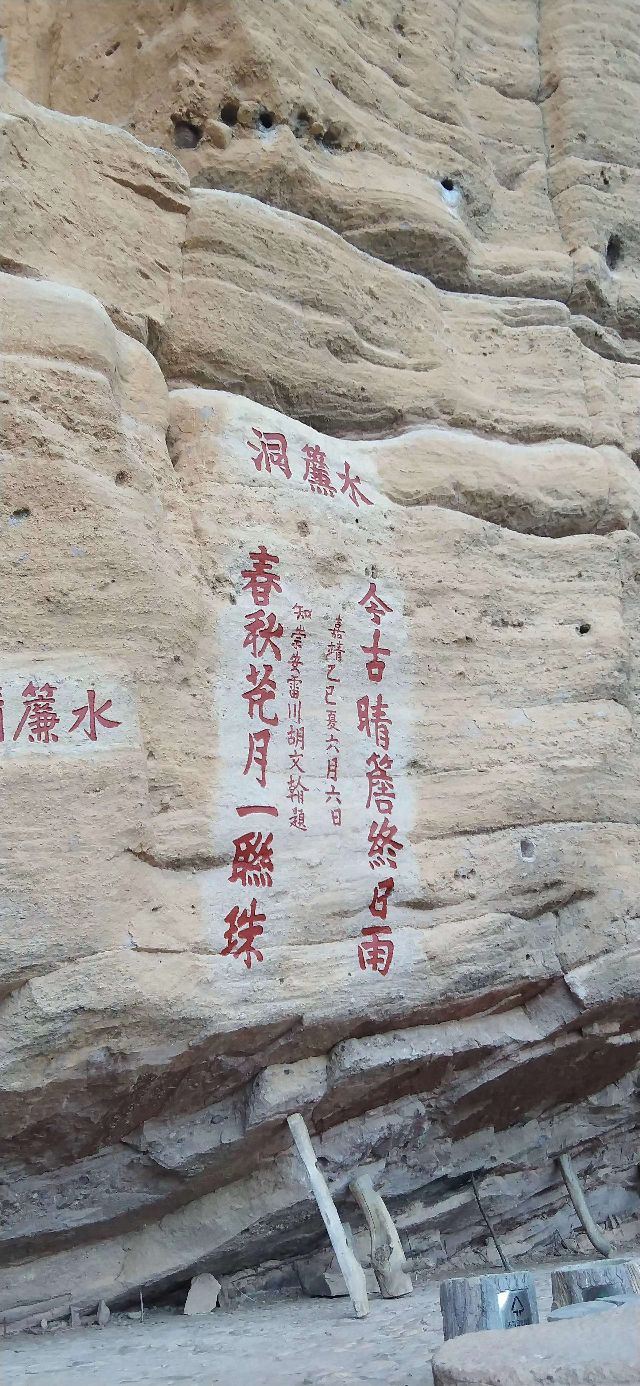 水簾洞
今古晴簷終日雨
嘉靖乙巳夏六月六日
知崇安雷川胡文翰題
春秋花月一聯珠
水簾